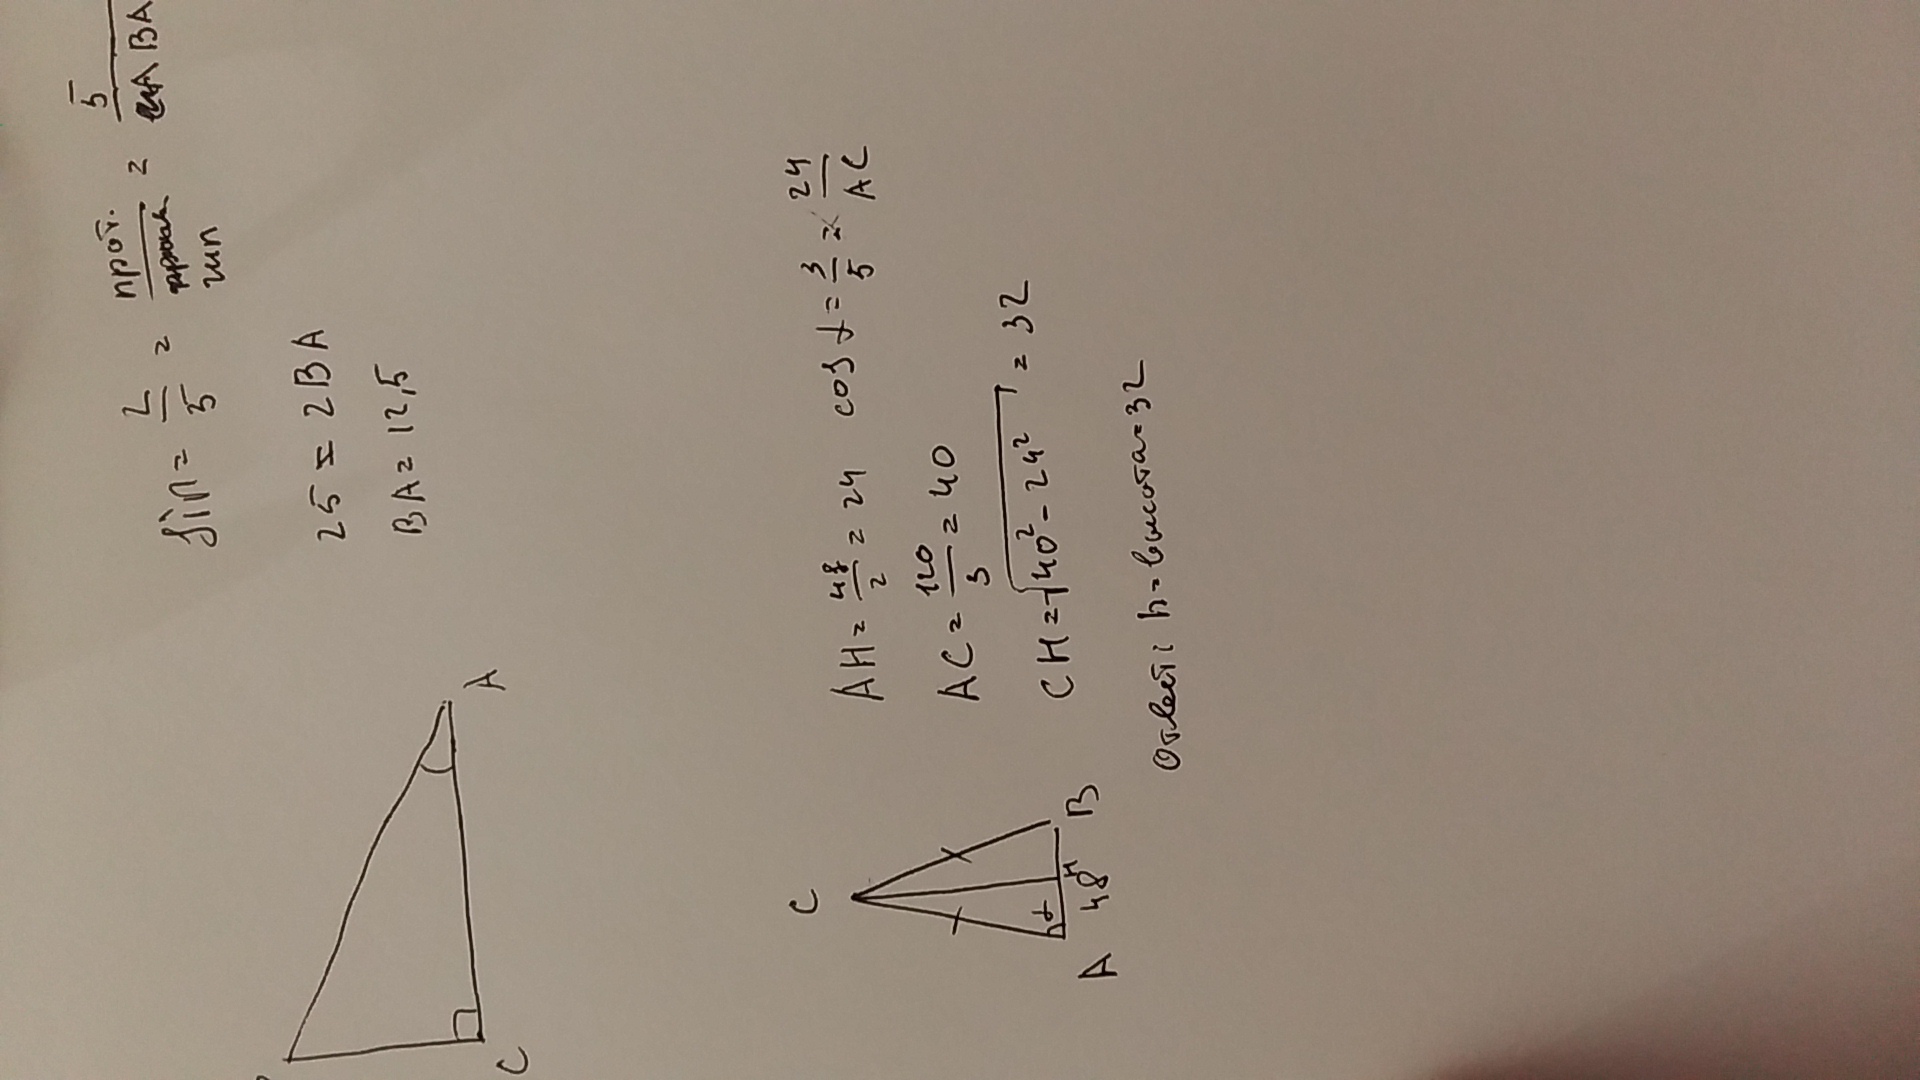 sin = 2/5 = прот./гип = 5/BA
25 = 2BA
BA = 12,5
A
C
C
A
48
H
B
α
AH = 48/2 = 24 cos α = 3/5 = 24/AC
AC = 120/3 = 40
CH = √40² - 24² = 32
Ответ: h = высота = 32